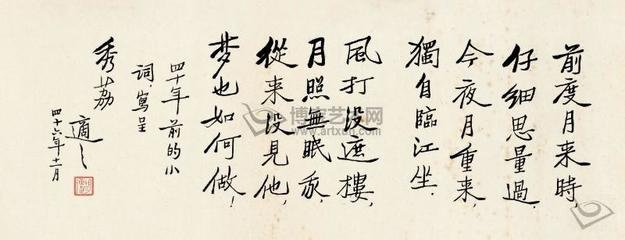 前度月来時，
仔细思量過．
今夜月重来，
獨自臨江坐．
風打没遮樓，
月照無眠我，
從来没見他，
梦也如何做！
四十年前的小
词，寫呈
秀荔
適之
四十六年十一月
博宝艺术网
www.artxun.com